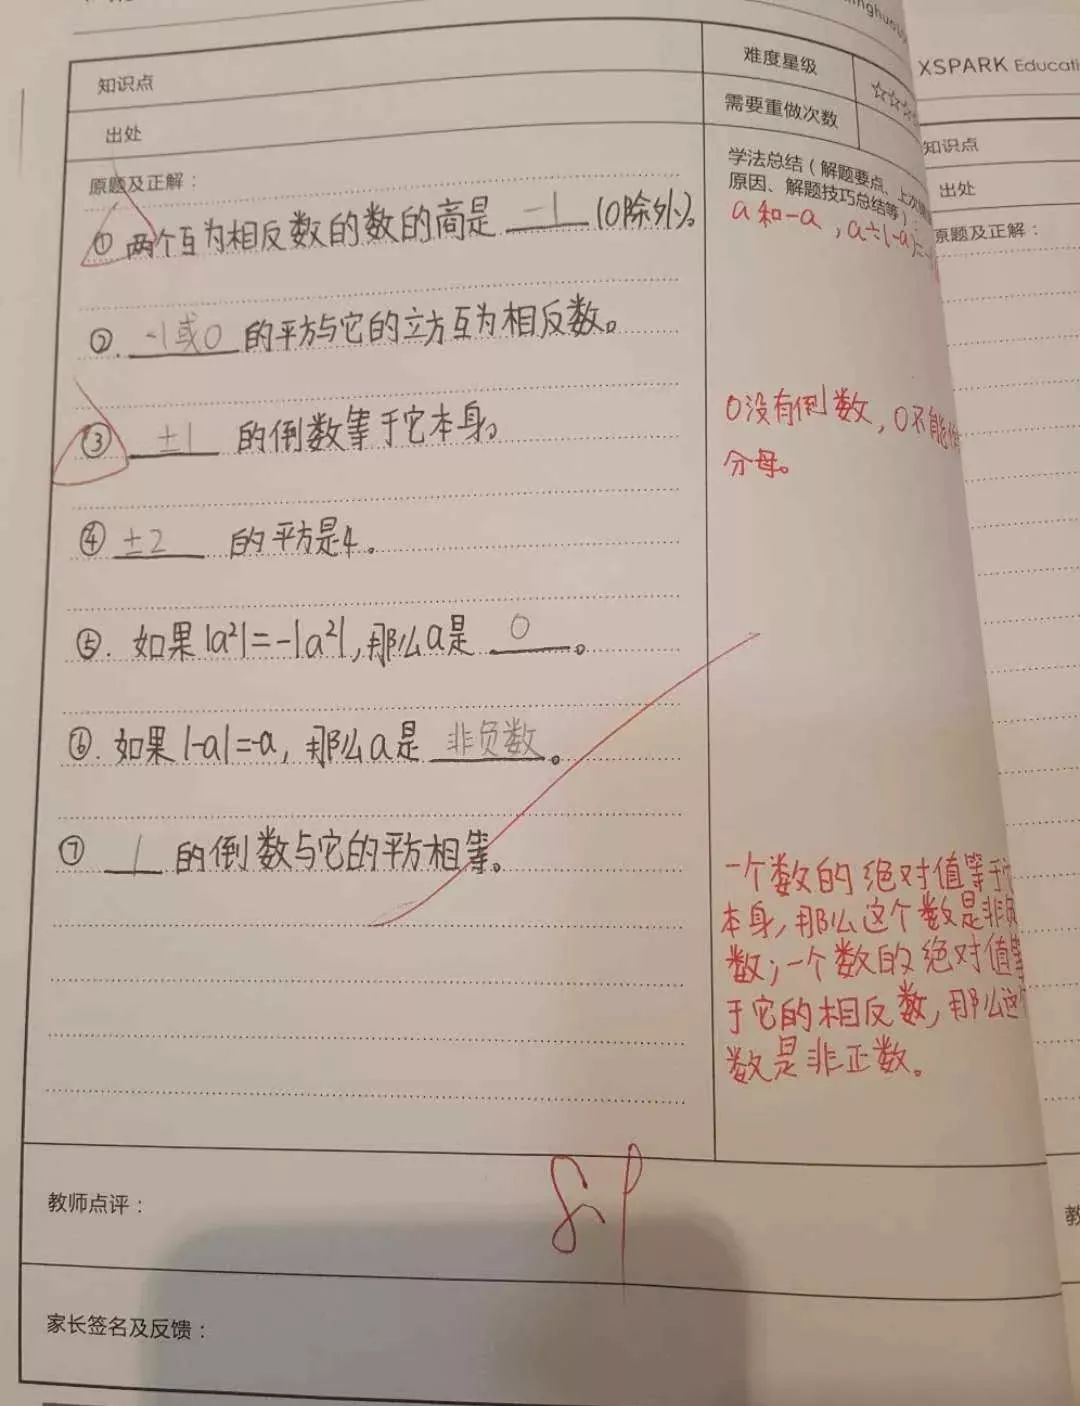 XSPARK Educati
知识点
难度星级
☆☆☆
出处
需要重做次数
原题及正解：
学法总结（解题要点、上次
原因、解题技巧总结等）
① 两个互为相反数的数的商是 -1 (0除外)。
a和-a，a÷(-a)=-
②. -1或0 的平方与它的立方互为相反数。
③ ±1 的倒数等于它本身。
0没有倒数，0不能
分母。
④ ±2 的平方是4。
⑤. 如果|a²|=-|a²|,那么a是 0 。
⑥. 如果|-a|=-a, 那么a是 非负数 。
⑦ 1 的倒数与它的平方相等。
一个数的绝对值等于
本身,那么这个数是非
数;一个数的绝对值等
于它的相反数,那么这
数是非正数。
教师点评：
家长签名及反馈：
知识点
出处
原题及正解：
教